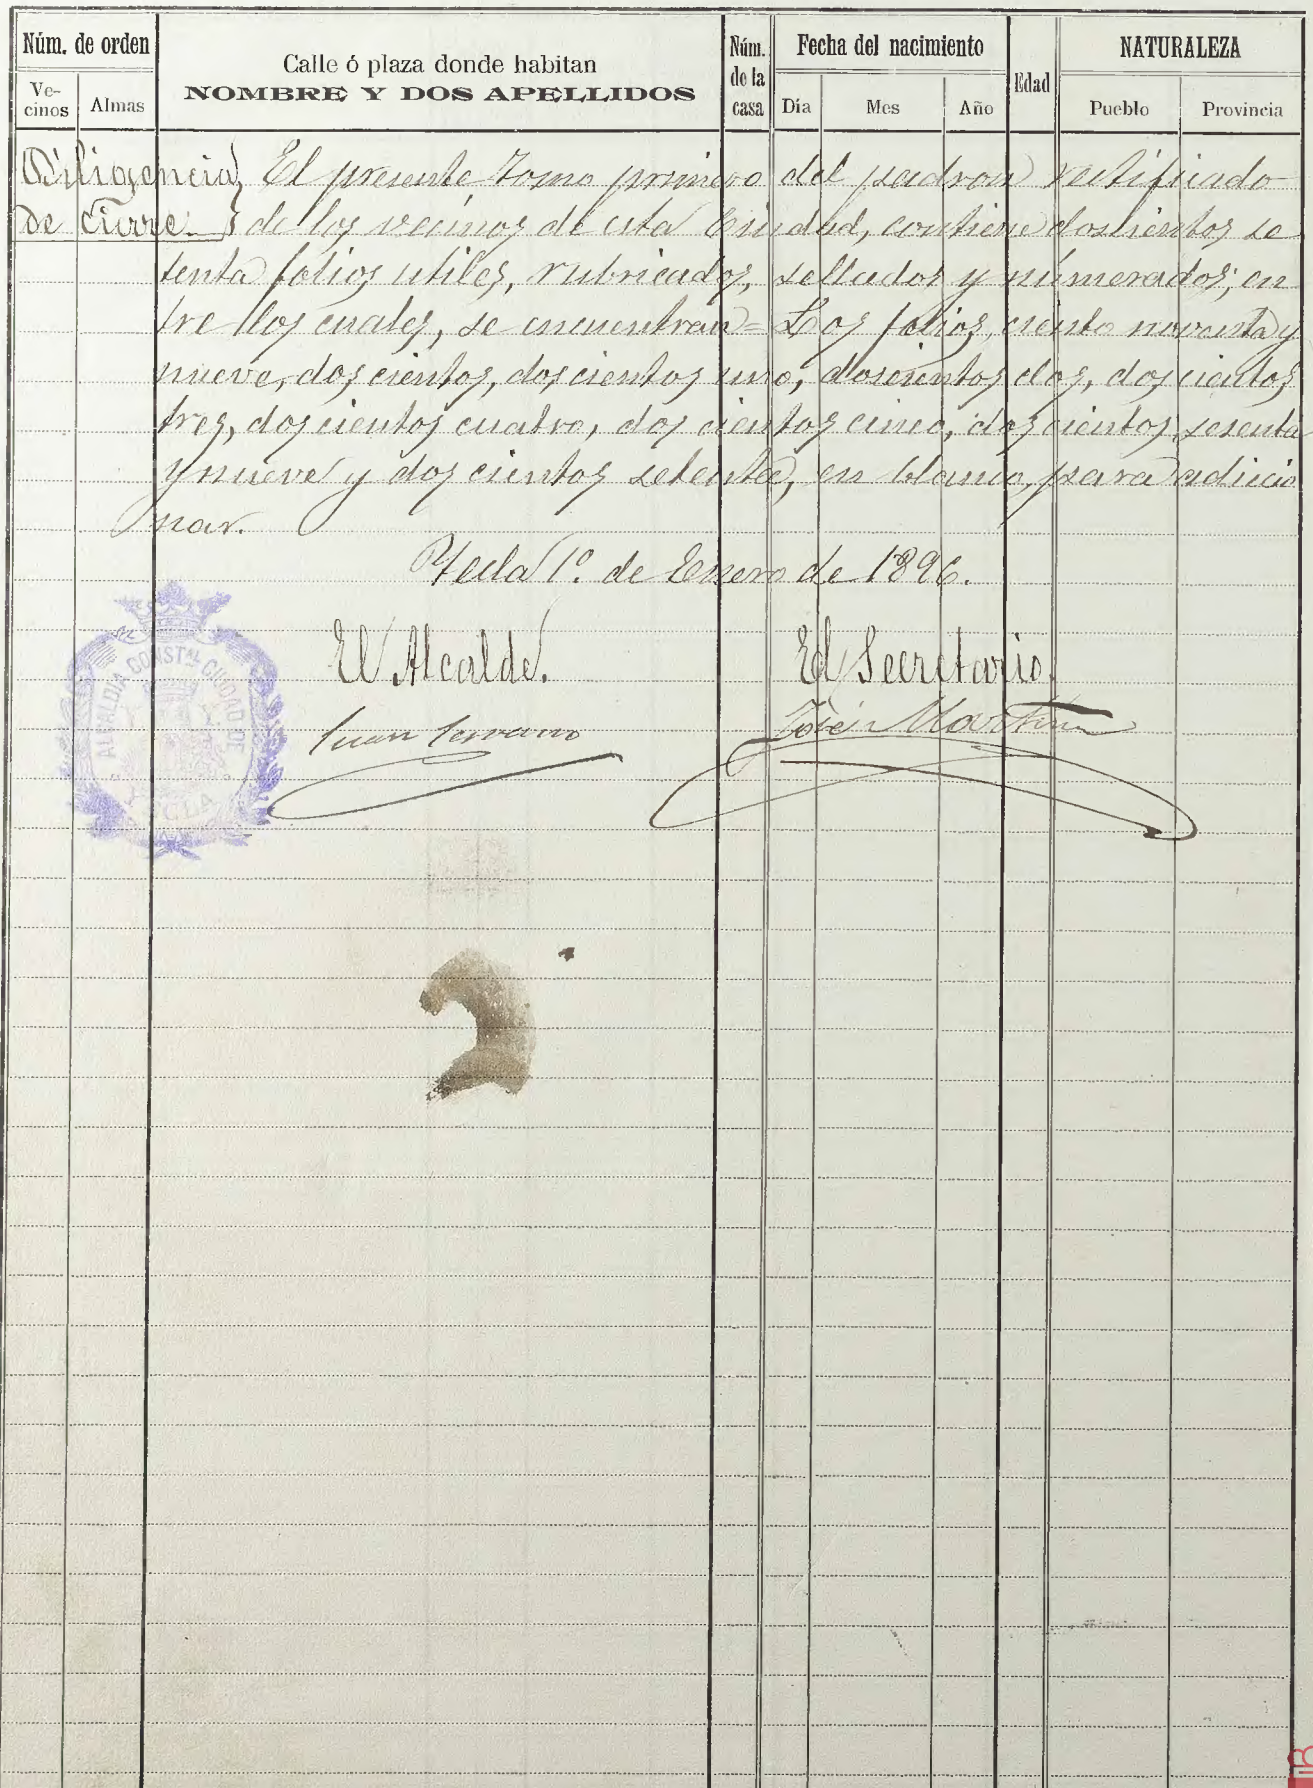 Núm. de orden
Ve-
cinos
Almas
Calle ó plaza donde habitan
NOMBRE Y DOS APELLIDOS
Núm.
de la
casa
Fecha del nacimiento
Día
Mes
Año
Edad
NATURALEZA
Pueblo
Provincia
Diligencia} El presente Tomo primero del padron rectificado
de cierre.} de los vecinos de esta Ciudad, contiene doscientos se
tenta folios utiles, rubricados, sellados y númerados; en
tre llos cuales, se encuentran = Los folios, ciento noventa y
nueve, dos cientos, dos cientos uno, doscientos dos, dos cientos
tres, dos cientos cuatro, dos cientos cinco, dos cientos, sesenta
y nueve y dos cientos setenta, en blanco, para adicio
nar.
Yecla 1º. de Enero de 1896.
El Alcalde.
El Secretario.
Juan Serrano
José Martinez
ALCALDÍA CONSTAL CIUDAD DE
YECLA